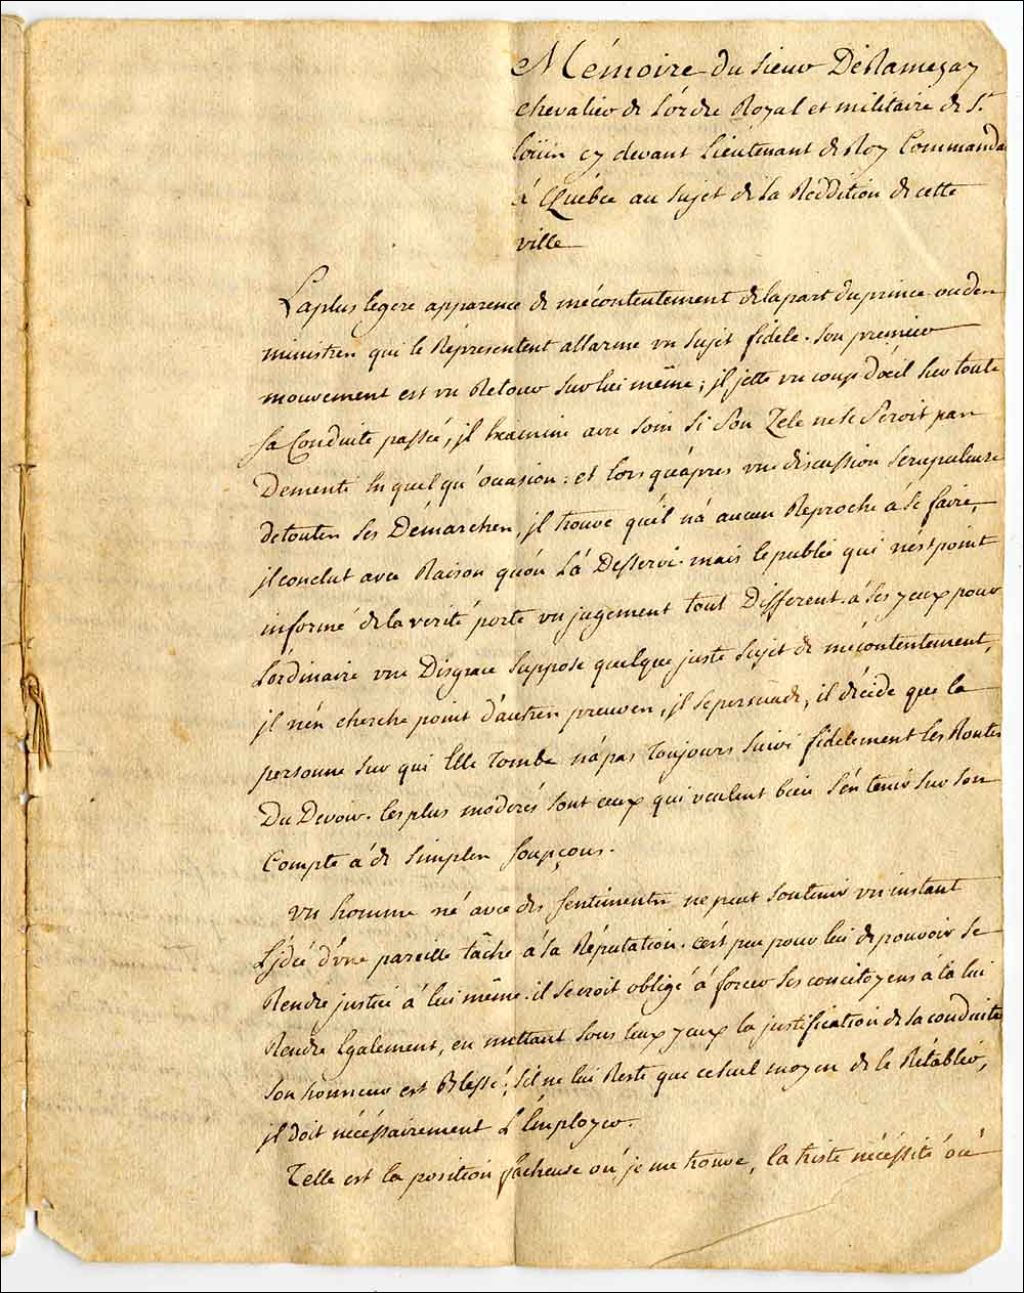 Mémoire du Sieur DéRamezay
chevalier de L'ordre Royal et militaire de S.t
Loüis cy devant Lieutenant de Roy Commanda
à Québec au Sujet de La Réddition de cette
ville
La plus legere apparence de mécontentement de la part du prince ou des
ministres qui le Réprésentent allarme un Sujet fidele. Son premier
mouvement est un Retour Sur lui même; il jette un coup d'œil Sur toute
Sa Conduite passée, il Examine avec Soin Si Son Zele ne Se Seroit pas
Dementi En quelqu'ocasion: et Lors qu'après une discussion Scrupuleuse
de toutes Ses Démarches, il trouve qu'il n'a aucun Réproche à Se faire,
il conclut avec Raison qu'on L'a Desservi. mais le public qui n'est point
informé de la verité porte un jugement tout Different. à Ses yeux pour
L'ordinaire une Disgrace Suppose quelque juste Sujet de mécontentement,
il n'en cherche point d'autres preuves, il Se persuade, il décide que la
personne Sur qui Elle Tombe n'a pas Toujours Suivi fidelement Les Routes
Du Devoir. Les plus moderés Sont ceux qui veulent bien S'en tenir Sur Son
Compte à de Simples Soupçons.
Un homme né avec des Sentiments ne peut Soutenir un instant
L'jdée d'une pareille tâche à Sa Réputation. c'est peu pour lui de pouvoir Se
Rendre justice à lui même. il Se croit obligé à forcer Ses concitoyens à la lui
Rendre Egalement, en mettant Sous Leux yeux la justification de Sa conduite
Son honneur est Blessé; S'il ne lui Reste que ce Seul moyen de le Rétablir,
il doit nécéssairement L'Employer.
Telle est la position fâcheuse où je me trouve, la triste nécéssité où